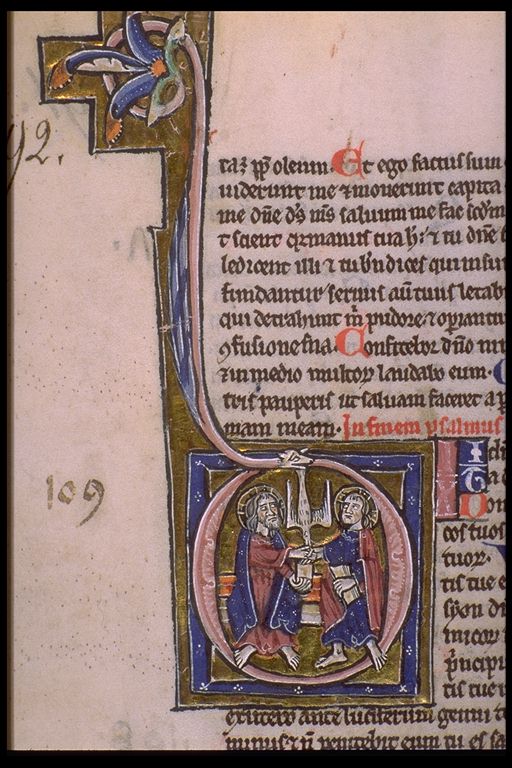 92.
taꝫ pp̄ oleum. Et ego factus sum
uiderunt me ⁊ mouerunt capita
me dn̄e ds̄ ms̄ saluum me fac scd̄m
t scient qꝛ manus tua h̄ ⁊ tu dn̄e
ledicent illi ⁊ tu bn̄dices qui insur
fundantur seruus aūt tuus letab
qui detrahunt m̄ pudore ⁊ opiantur
9fusione sua. Confitebor dn̄o
⁊ in medio multoꝝ laudabo eum.
tris pauperis ut saluam faceret a p
mam meam. In finem psalmus
109
cos tuos
tuoꝝ.
tis tue
syon
micoꝝ
p̄ncipiu
tis tue
ex utero ante luciferum genui t
minus ⁊ n̄ penitebit eum tu es sa